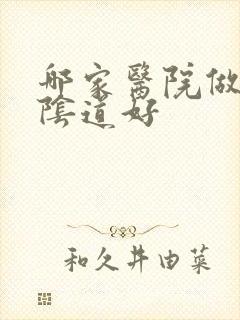 哪家醫院做
陰道好
和久井由菜